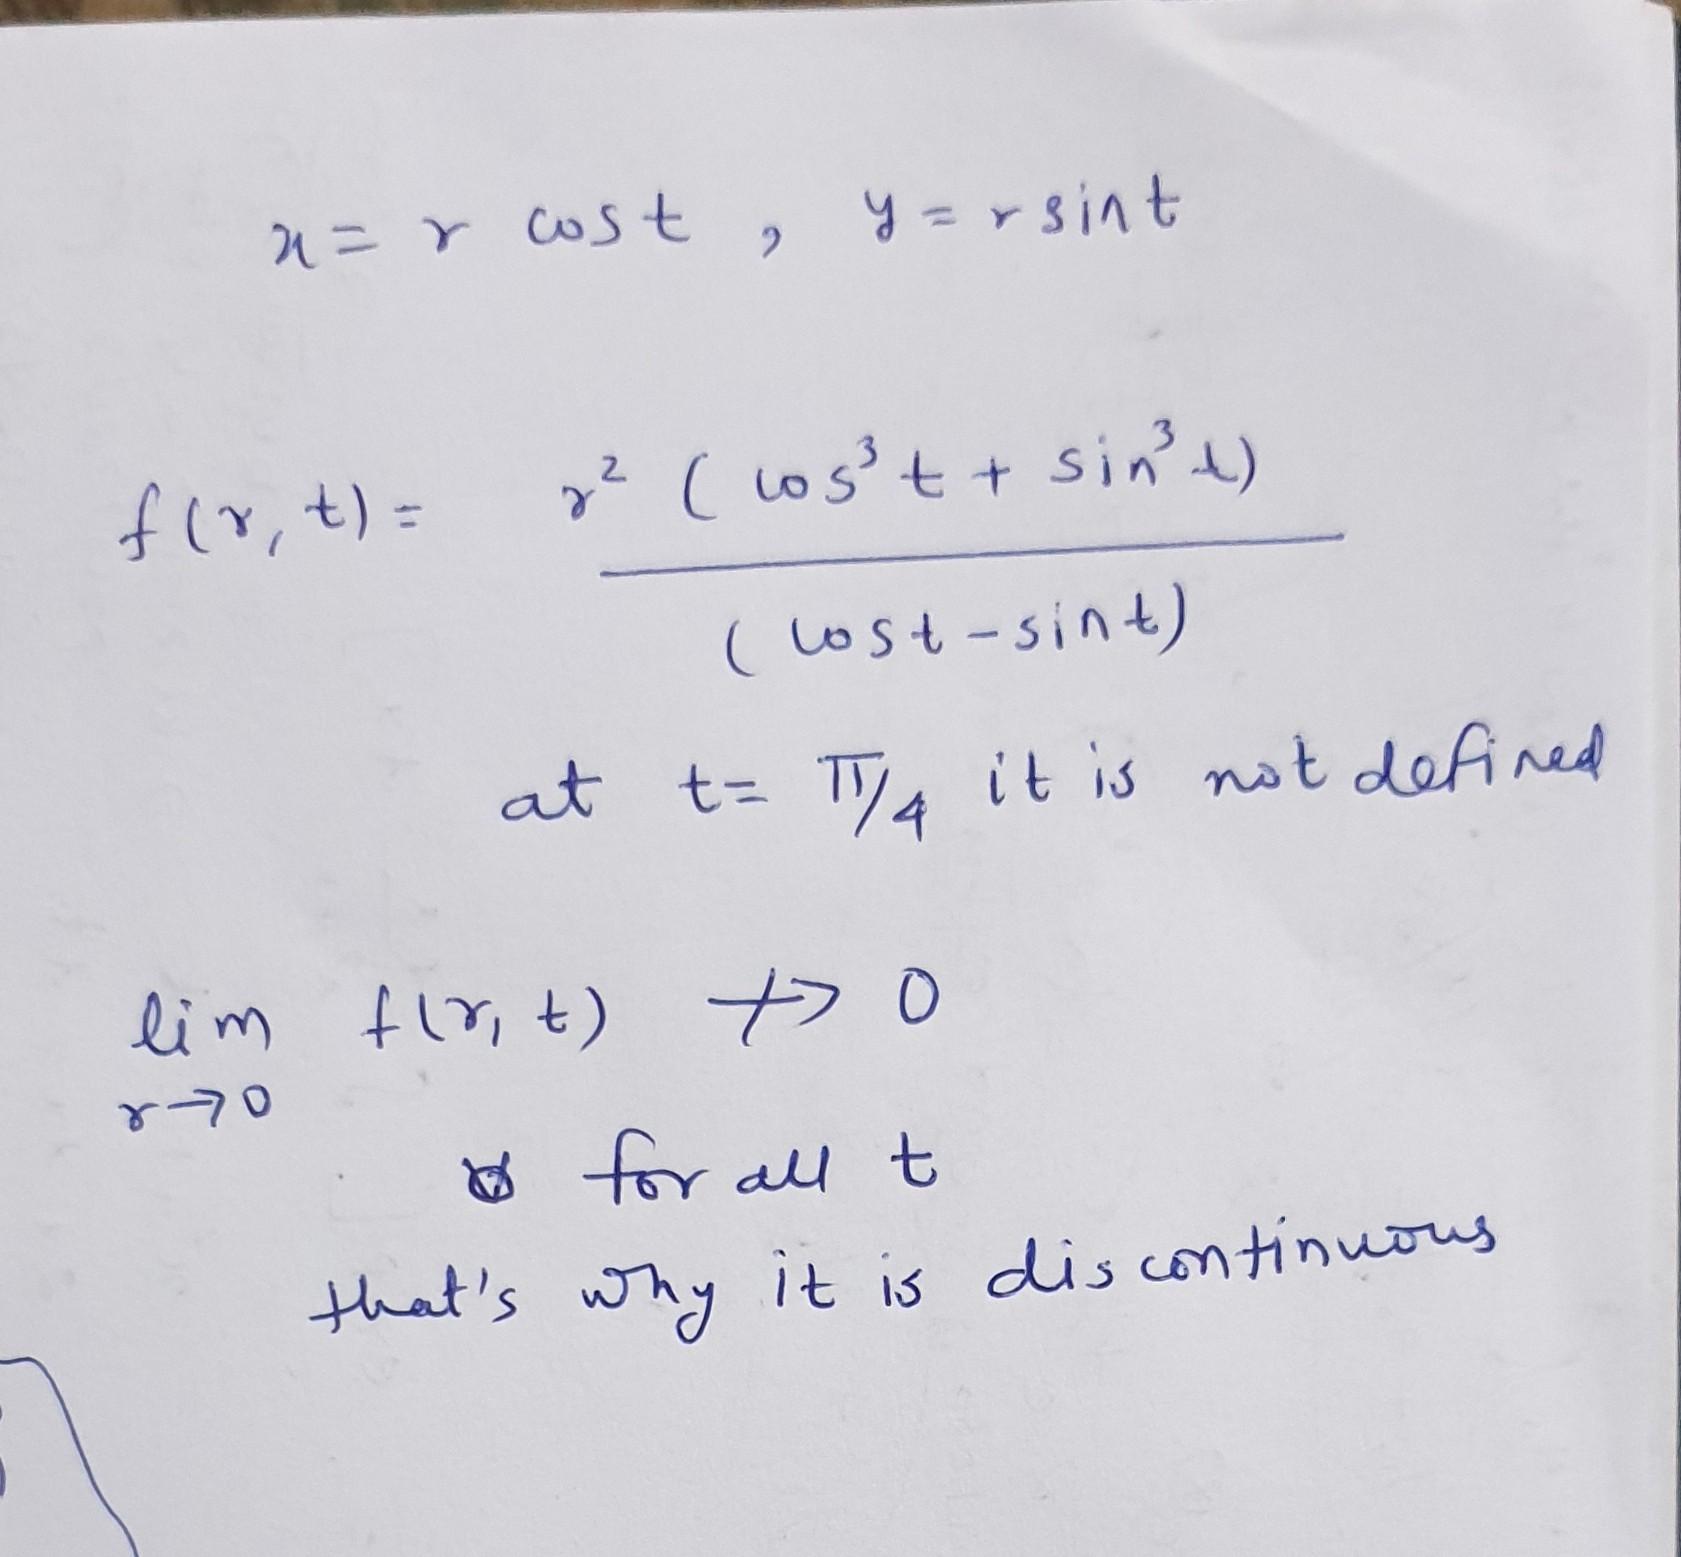 x = r cost , y = r sint
f(r, t) = r² ( cos³t + sin³t)
( cost - sint)
at t = π/4 it is not defined
lim f(r, t) ↛ 0
r→0
for all t
that's why it is discontinuous